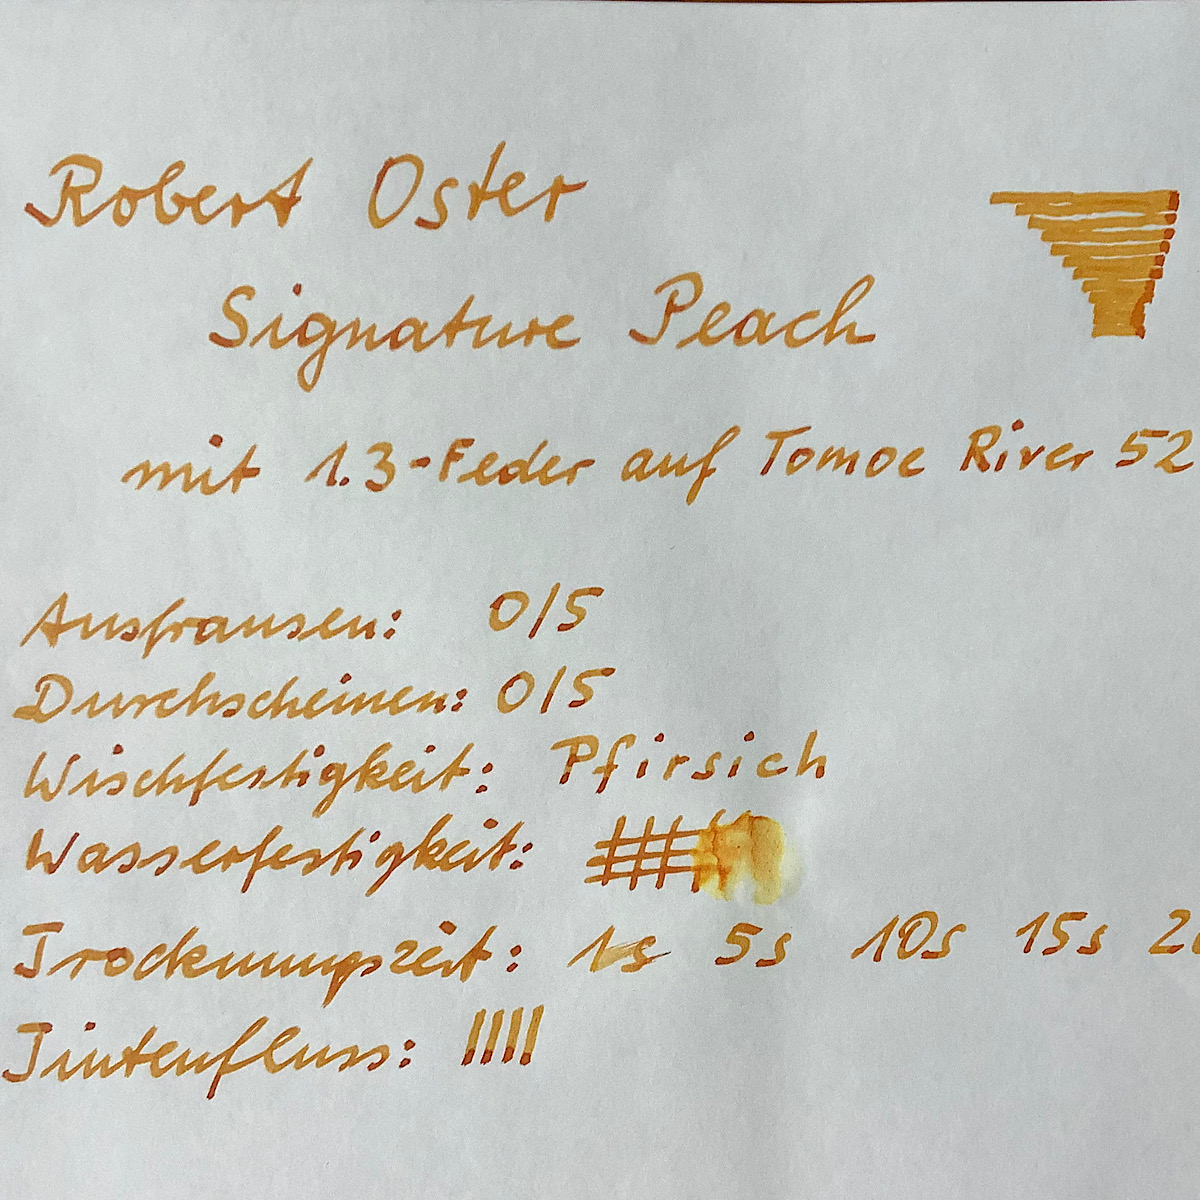 Robert Oster
Signature Peach
mit 1.3-Feder auf Tomoe River 52
Ausfransen: 0/5
Durchscheinen: 0/5
Wischfestigkeit: Pfirsich
Wasserfestigkeit:
Trocknungszeit: 1s 5s 10s 15s 2
Tintenfluss: